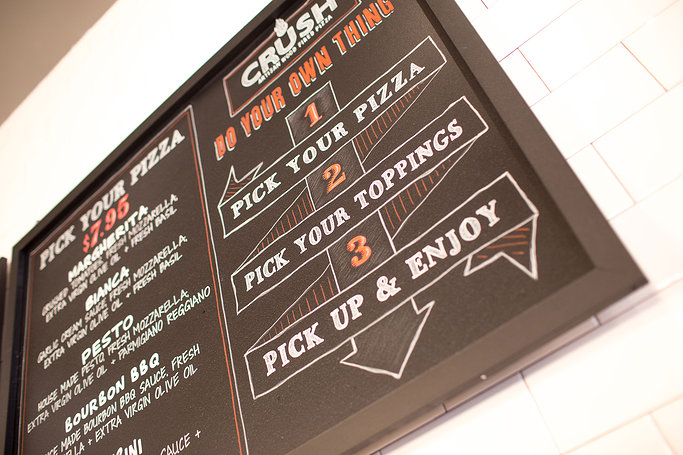 CRUSH
ARTISAN WOOD FIRED PIZZA
DO YOUR OWN THING
1
PICK YOUR PIZZA
2
PICK YOUR TOPPINGS
3
PICK UP & ENJOY
PICK YOUR PIZZA
$7.95
MARGHERITA
CRUSHED TOMATOES, FRESH MOZZARELLA,
EXTRA VIRGIN OLIVE OIL + FRESH BASIL
BIANCA
GARLIC CREAM SAUCE, FRESH MOZZARELLA,
EXTRA VIRGIN OLIVE OIL + FRESH BASIL
PESTO
HOUSE MADE PESTO, FRESH MOZZARELLA,
EXTRA VIRGIN OLIVE OIL + PARMIGIANO REGGIANO
BOURBON BBQ
MADE BOURBON BBQ SAUCE, FRESH
+ EXTRA VIRGIN OLIVE OIL
SAUCE +